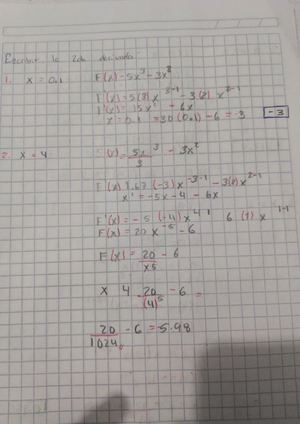 Escribir la 2da derivada
1. x = 0.1 F(x) = 5x³ - 3x²
F'(x) = 5(3)x³⁻¹ - 3(2)x²⁻¹
F'(x) = 15x² - 6x
x = 0.1 = 30(0.1) - 6 = -3 -3
2. x = 4 (x) = 5x³/3 - 3x²
F(x) 1.67(-3)x⁻³⁻¹ - 3(2)x²⁻¹
x' = -5x-4 - 6x
F'(x) = -5(-4)x 6(1)x¹⁻¹
F(x) = 20x⁻⁵ - 6
F(x) = 20/x5 - 6
x 4 20/(4)⁵ - 6 =
20/1024 - 6 = -5.98